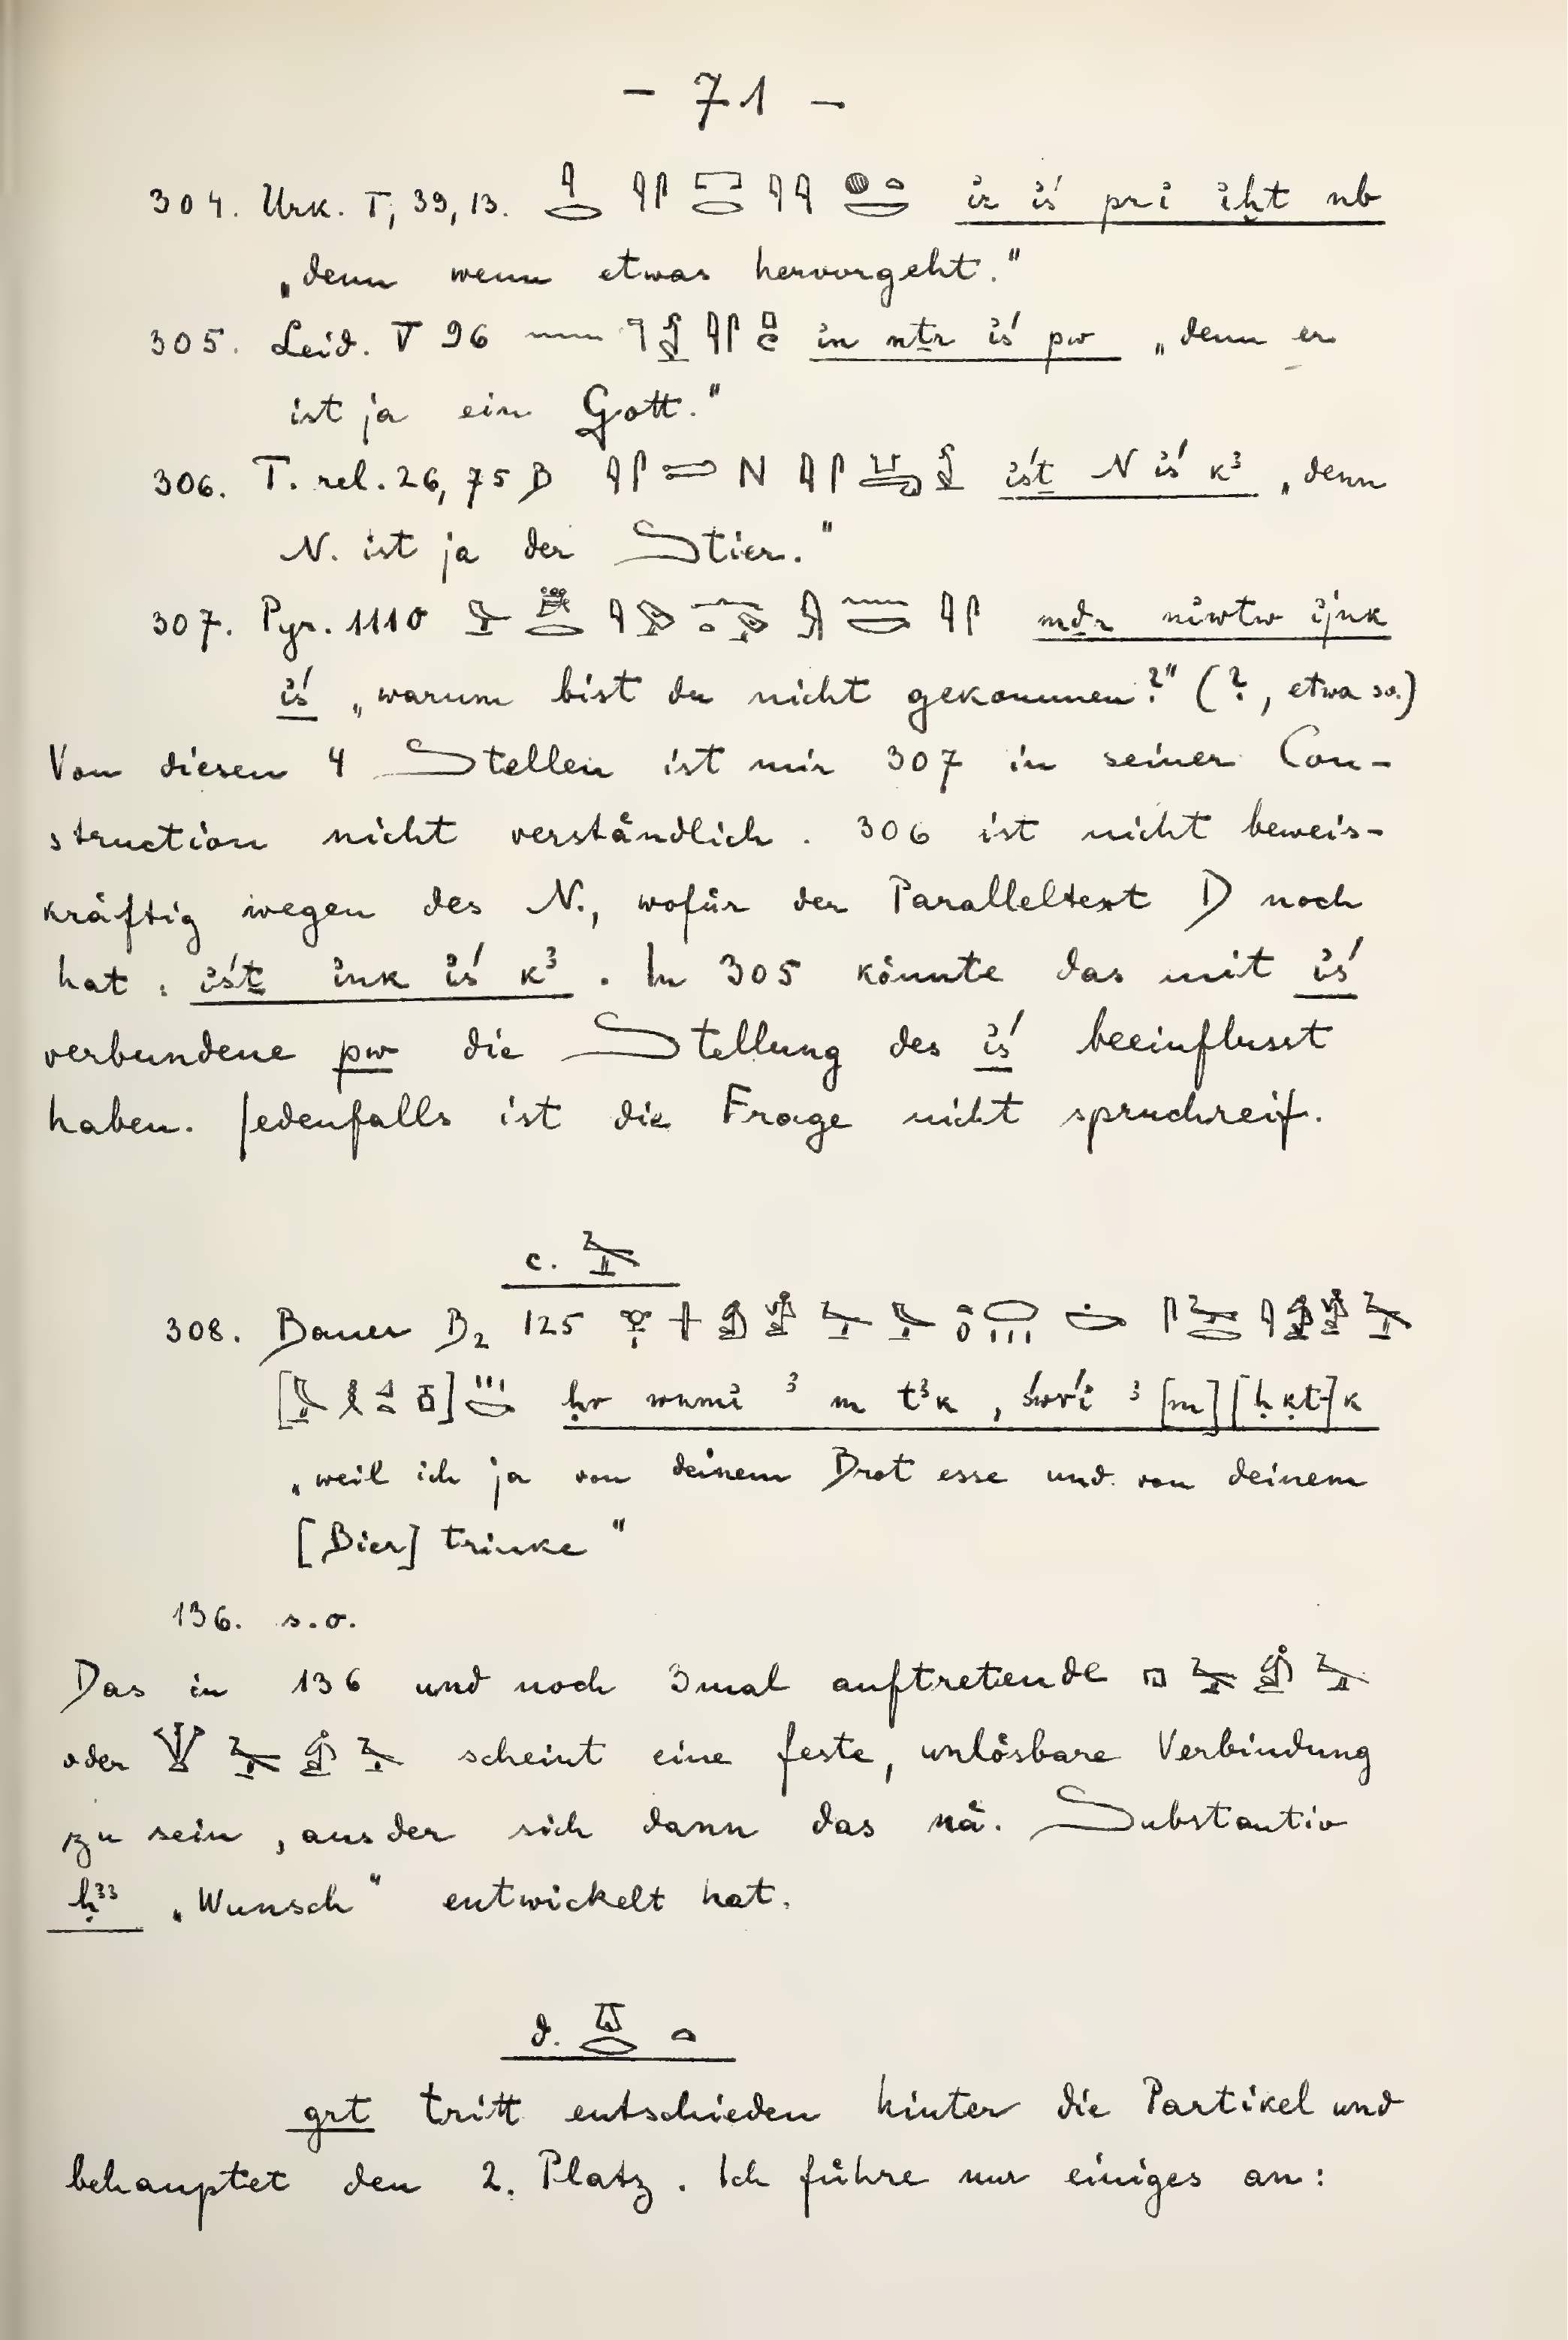 - 71 -
304. Urk. I, 39, 13. 𓇋𓂋 𓇋𓋴 𓉐𓂋 𓇋𓇋 𓐍𓏏𓎟 ir iś pri iḫt nb
„denn wenn etwas hervorgeht."
305. Leid. V 96 𓈖 𓊹𓀭 𓇋𓋴 𓊪𓅱 in nṯr iś pw „denn er
ist ja ein Gott."
306. T. rel. 26, 75 B 𓇋𓋴𓍿 N 𓇋𓋴 iśṯ N iś kꜣ „denn
N. ist ja der Stier."
307. Pyr. 1110 mḏr niwtw ijnk
iś „warum bist du nicht gekommen?" (?, etwa so.)
Von diesen 4 Stellen ist mir 307 in seiner Con-
struction nicht verständlich. 306 ist nicht beweis-
kräftig wegen des N., wofür der Paralleltext D noch
hat: iśṯ ink iś kꜣ. In 305 könnte das mit iś
verbundene pw die Stellung des iś beeinflusst
haben. Jedenfalls ist die Frage nicht spruchreif.
c. 𓄿
308. Bauer B2 125
ḥr wnmi ꜣ m tꜣk, śwri ꜣ [m][ḥḳt]k
„weil ich ja von deinem Brot esse und von deinem
[Bier] trinke"
136. s.o.
Das in 136 und noch 3mal auftretende 𓉔𓄿𓀁𓄿
oder 𓇉𓄿𓀁𓄿 scheint eine feste, unlösbare Verbindung
zu sein, aus der sich dann das nä. Substantiv
ḥꜣꜣ „Wunsch" entwickelt hat.
d. 𓎼𓂋 𓏏
grt tritt entschieden hinter die Partikel und
behauptet den 2. Platz. Ich führe nur einiges an: